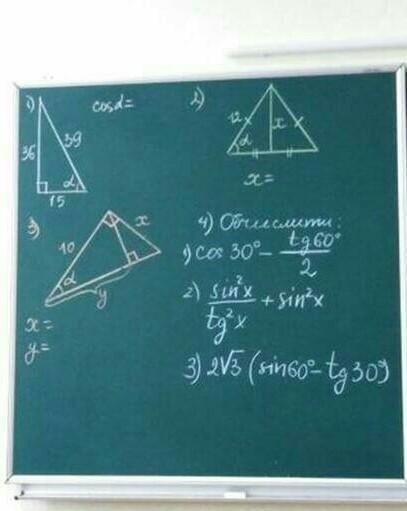 1) cosα=
36
39
α
15
2)
12
x
α
x=
3)
10
x
α
y
x=
y=
4) Обчислити:
1) cos 30° - tg60°/2
2) sin²x/tg²x + sin²x
3) 2√3 (sin60° - tg30°)